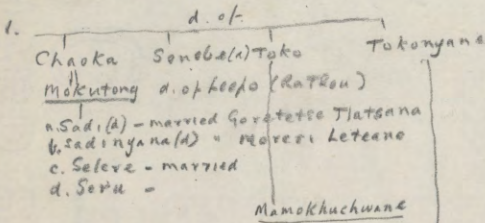 1. d. of.
Chaoka Senobe(d) Toko Tokonyane
Mokutong d. of Leepo (RaThou)
a. Sadi (d) - married Goretetse Tlatsana
b. Sadinyana (d) " Moreri Leteane
c. Selere - married
d. Seru -
Mamokhuchwane